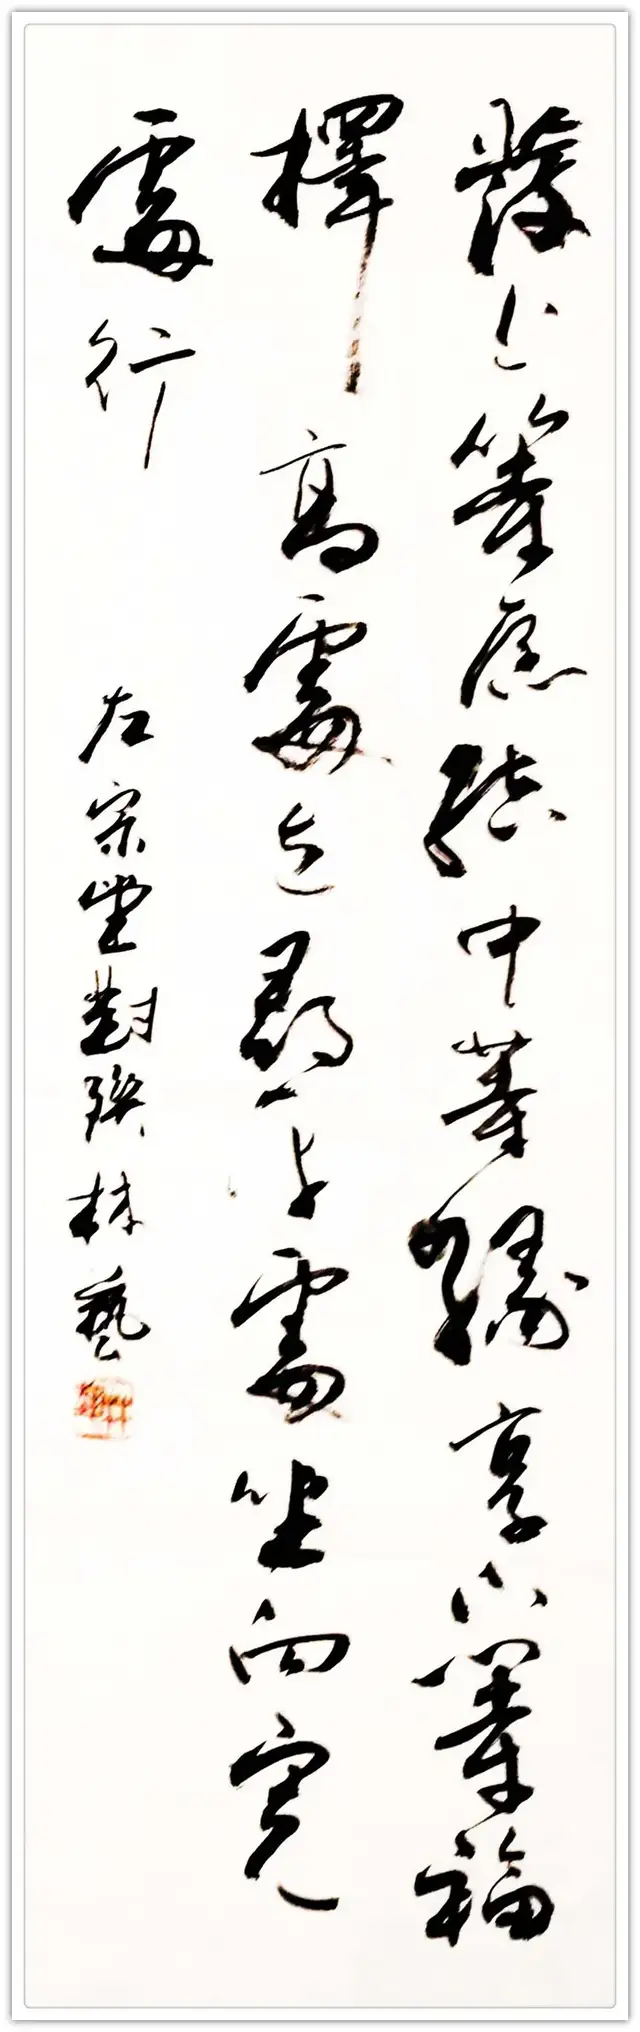 發上等愿結中等緣享下等福
擇高處立尋平處坐向寬
處行
左宗棠對聯林藝